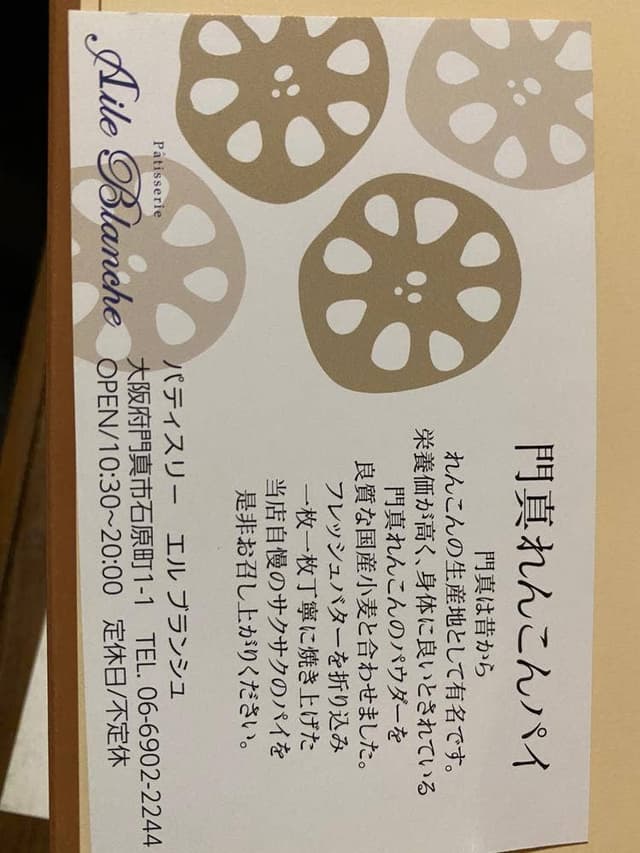 門真れんこんパイ
門真は昔から
れんこんの生産地として有名です。
栄養価が高く、身体に良いとされている
門真れんこんのパウダーを
良質な国産小麦と合わせました。
フレッシュバターを折り込み
一枚一枚丁寧に焼き上げた
当店自慢のサクサクのパイを
是非お召し上がりください。
Pâtisserie
Aile Blanche
パティスリー エル ブランシュ
大阪府門真市石原町1-1 TEL. 06-6902-2244
OPEN/10:30~20:00 定休日/不定休